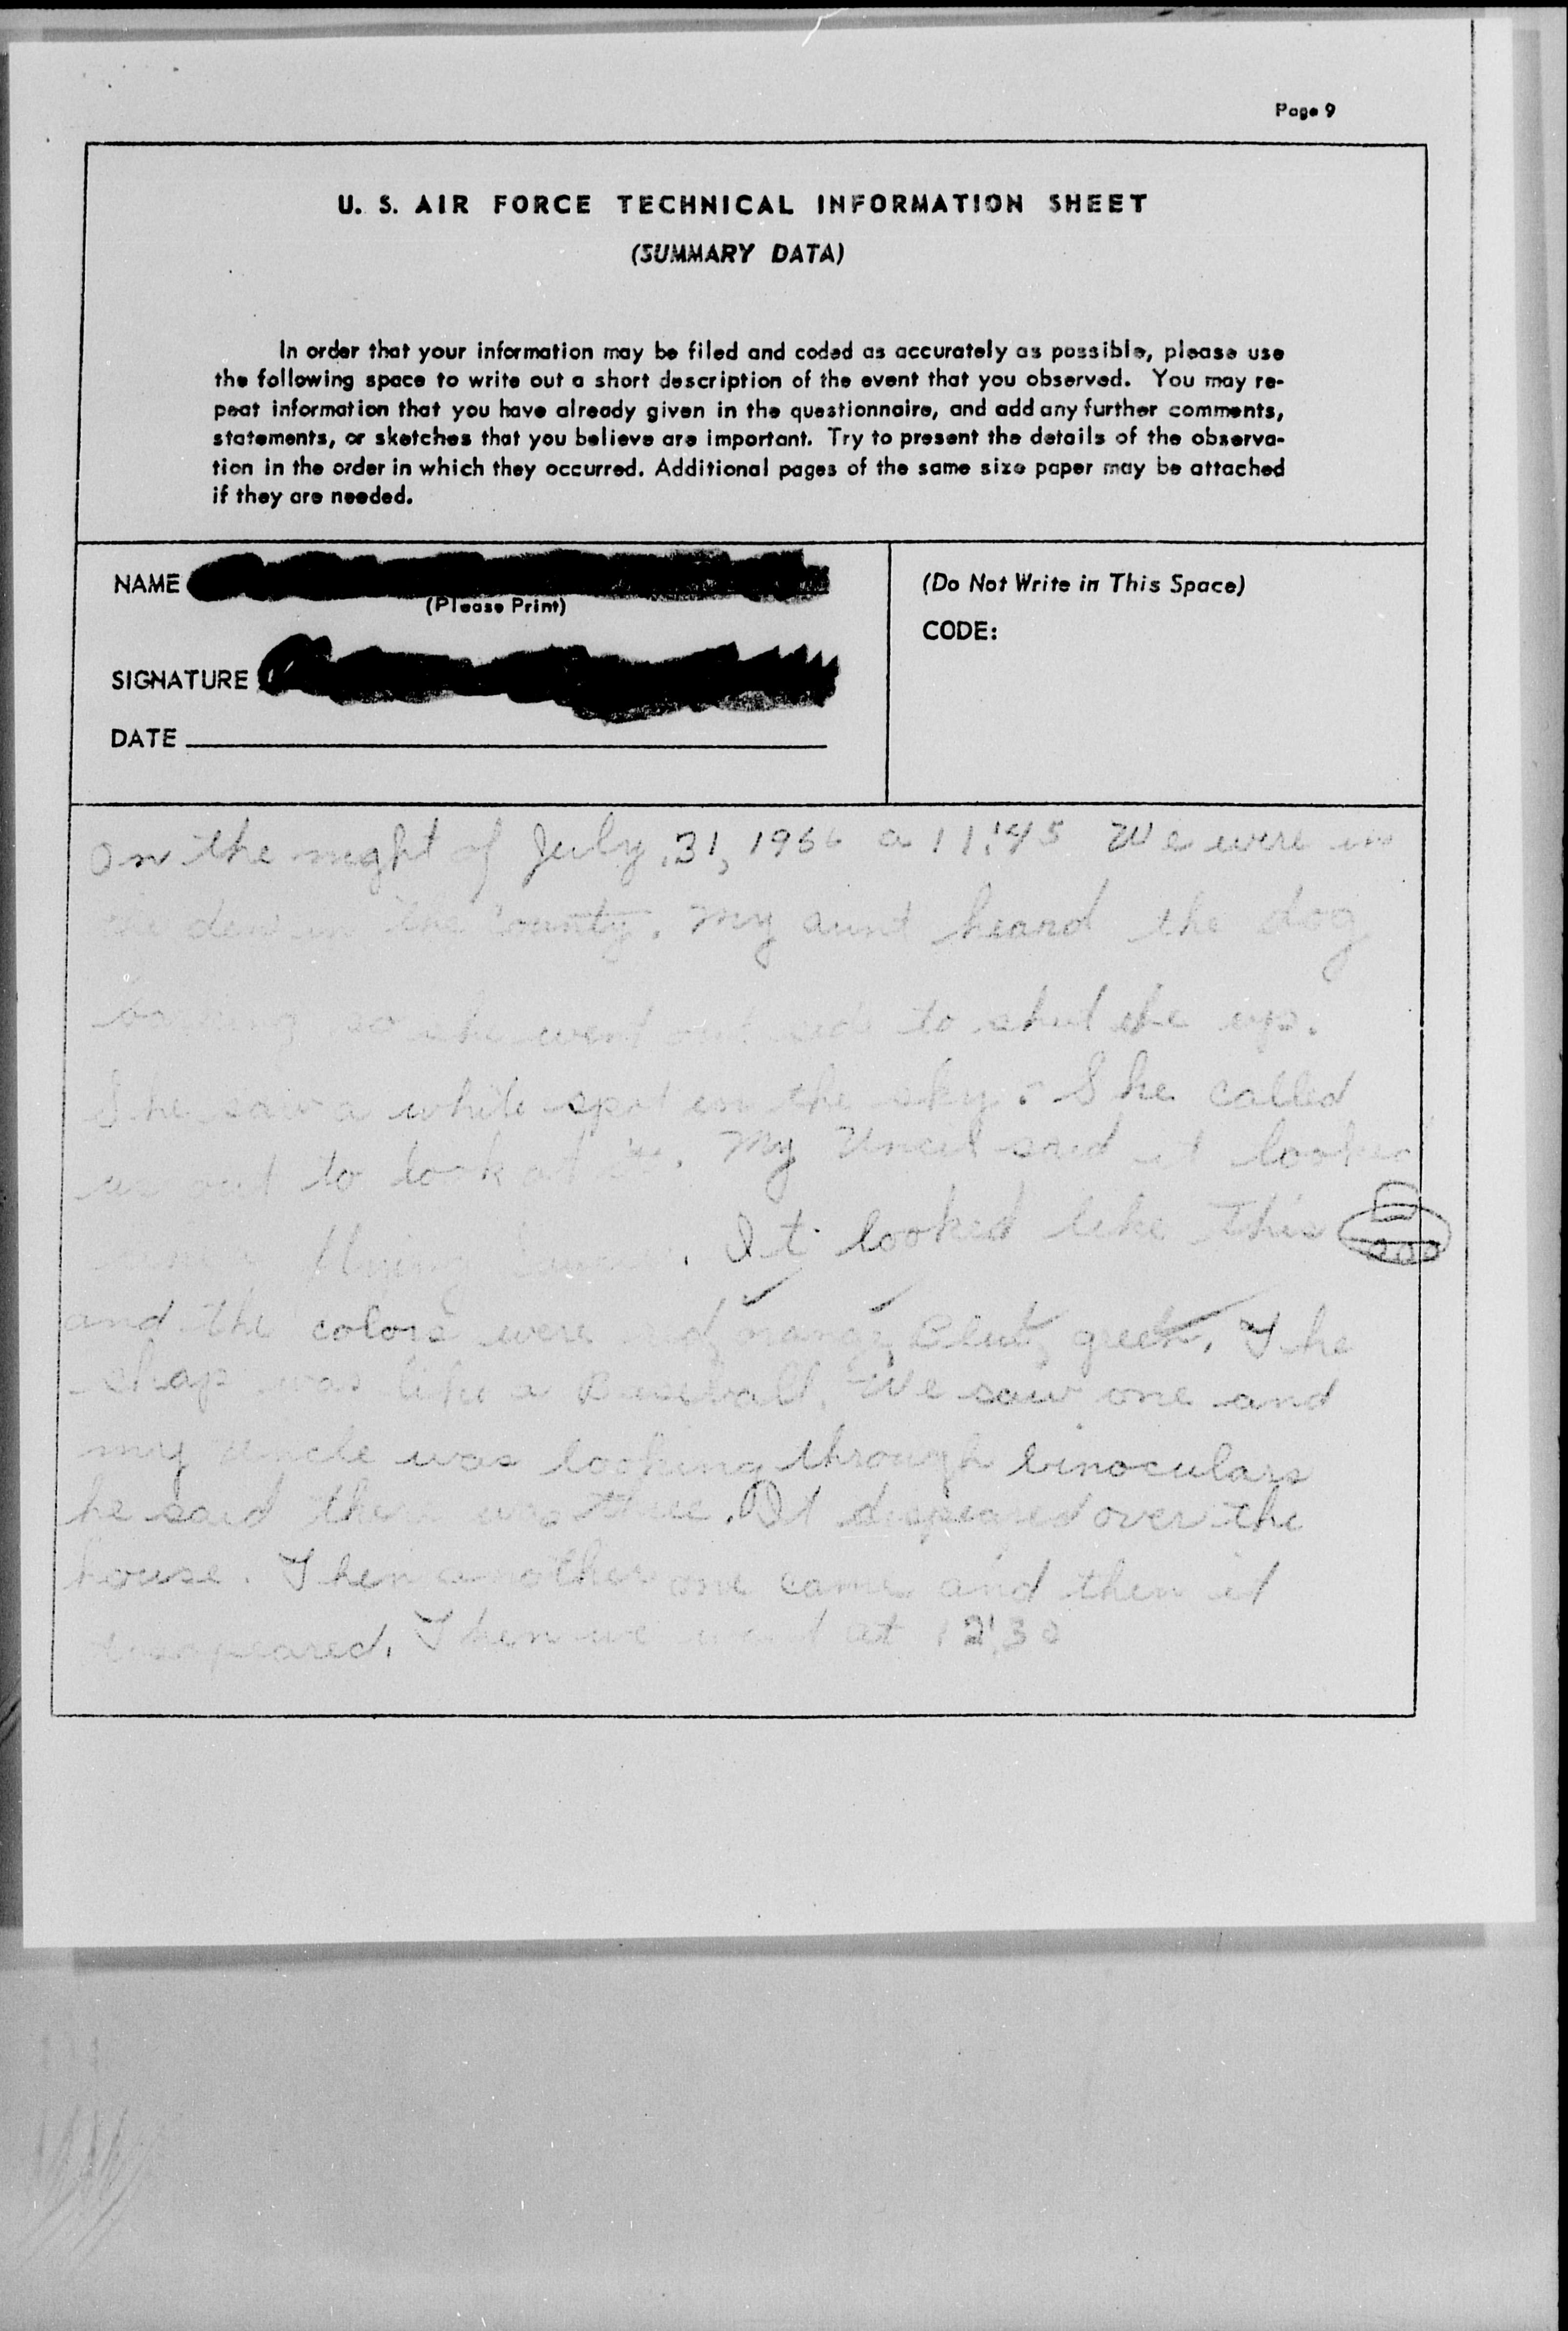 Page 9
U. S. AIR FORCE TECHNICAL INFORMATION SHEET
(SUMMARY DATA)
In order that your information may be filed and coded as accurately as possible, please use
the following space to write out a short description of the event that you observed. You may re-
peat information that you have already given in the questionnaire, and add any further comments,
statements, or sketches that you believe are important. Try to present the details of the observa-
tion in the order in which they occurred. Additional pages of the same size paper may be attached
if they are needed.
NAME
(Please Print)
SIGNATURE
DATE
(Do Not Write in This Space)
CODE:
On the night of July 31, 1966 a 11:45 We were in
the den in the County. My aunt heard the dog
barking so she went out side to shut the up.
She saw a white spot in the sky. She called
us out to look at it. My Uncel said it looked
flying. It looked like this
and the colors were red, orange, green. The
shap was like a Baseball. We saw one and
my uncle was looking through binoculars
he said there was three. It dispeared over the
house. Then another one came and then it
Then we went at 12:30